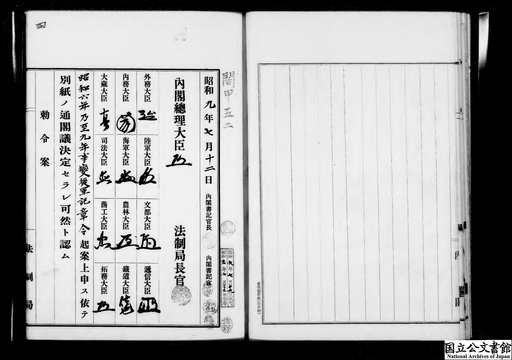 閣甲 五二
昭和九年七月十二日 内閣書記官長 内閣書記官
内閣總理大臣 法制局長官
外務大臣 陸軍大臣 文部大臣 遞信大臣
内務大臣 海軍大臣 農林大臣 鐵道大臣
大藏大臣 司法大臣 商工大臣 拓務大臣
昭和六年乃至九年事變從軍記章令起案上申ス依テ
別紙ノ通閣議決定セラレ可然ト認ム
勅令案
法制局
四
内閣
国立公文書館
National Archives of Japan